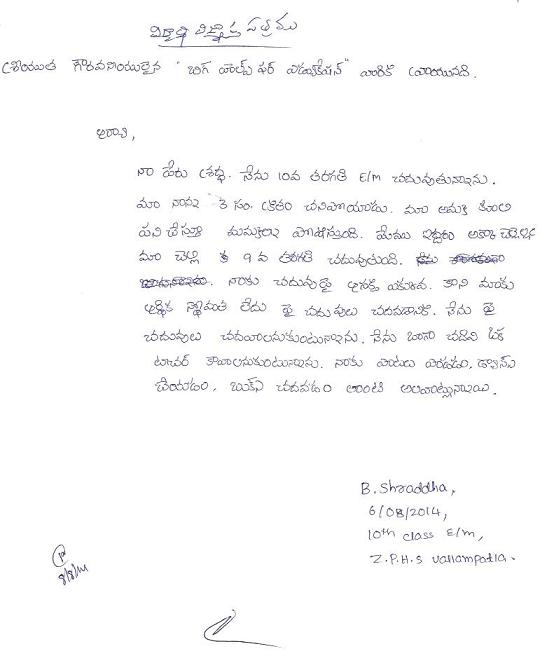 విద్యార్థి విజ్ఞాన పత్రము
శ్రీయుత గౌరవనీయులైన "బిగ్ హెల్ప్ ఫర్ ఎడ్యుకేషన్" వారికి వ్రాయునది.
ఆర్యా,
నా పేరు శ్రద్ధ. నేను 10వ తరగతి E/M చదువుతున్నాను.
మా నాన్న 3 సం. క్రితం చనిపోయాడు. మా అమ్మ కూలి
పని చేస్తూ మమ్మలను పోషిస్తుంది. మేము ఇద్దరం అక్కా చెల్లెల్లు
మా చెల్లి 9వ తరగతి చదువుతుంది.
నాకు చదువుపై ఆసక్తి ఎక్కువ. కాని మాకు
ఆర్థిక స్థోమత లేదు పై చదువులు చదవడానికి. నేను పై
చదువులు చదవాలనుకుంటున్నాను. నేను బాగా చదివి ఒక
టీచర్ కావాలనుకుంటున్నాను. నాకు పాటలు పాడడం, డ్యాన్స్
చేయడం, బుక్స్ చదవడం లాంటి అలవాట్లున్నాయి.
B. Shraddha,
6/08/2014,
10th class E/M,
Z.P.H.S Vallampatla.